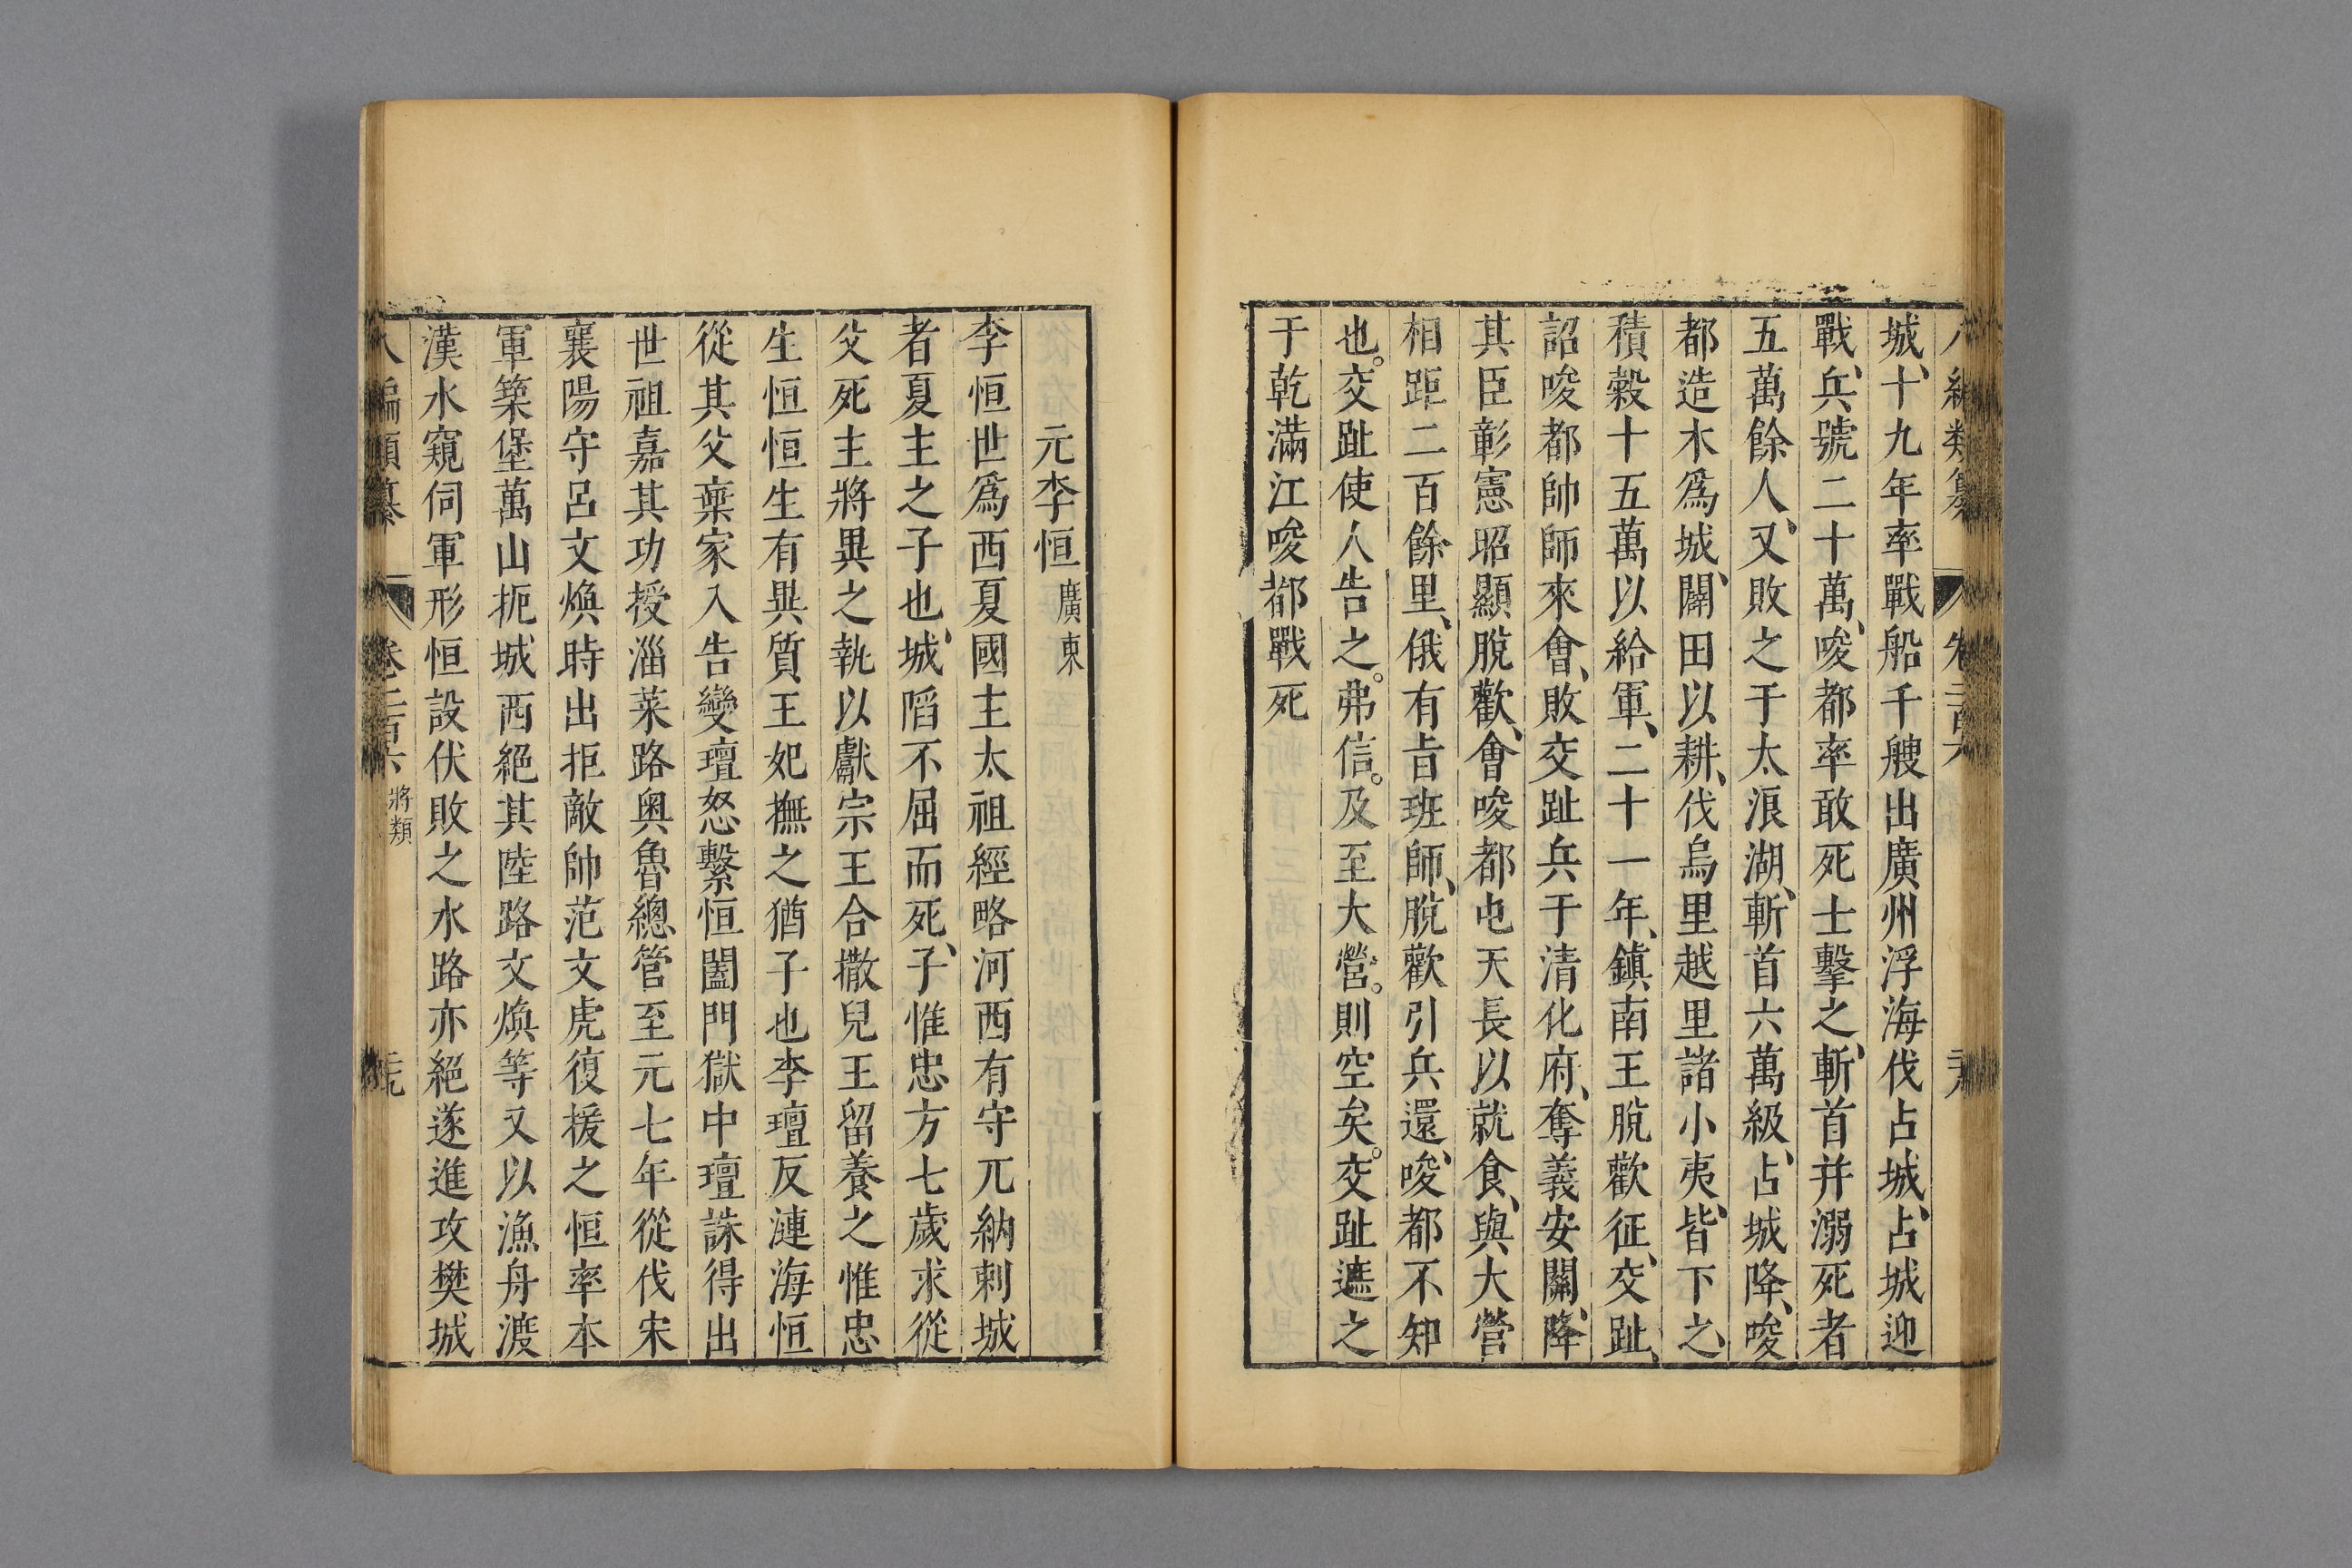 城、十九年率戰船千艘出廣州浮海伐占城、占城迎
戰、兵、號二十萬、唆都率敢死士擊之、斬首并溺死者
五萬餘人、又敗之于太浪湖、斬首六萬級、占城降、唆
都造木爲城、闢田以耕、伐烏里越里諸小夷、皆下之、
積穀十五萬以給軍、二十一年、鎮南王脫歡征、交趾、
詔唆都帥師來會、敗交趾兵于清化府、奪義安關、降
其臣彰憲昭顯脫歡、會唆都屯天長以就食、與大營
相距二百餘里、俄有㫖班師、脫歡引兵還、唆都不知
也。交趾使人告之。弗信。及至大營。則空矣。交趾遮之
于乾滿江唆都戰死
元李恒廣東
李恒世爲西夏國主太祖經略河西有守兀納剌城
者夏主之子也、城陷不屈而死、子惟忠方七歲求從
父死主將異之執以獻宗王合撒兒王留養之惟忠
生恒恒生有異質王妃撫之猶子也李璮反漣海恒
從其父棄家入告變璮怒繫恒闔門獄中璮誅得出
世祖嘉其功授淄萊路奧魯總管至元七年從伐宋
襄陽守呂文煥時出拒敵帥范文虎復援之恒率本
軍築堡萬山扼城西絕其陸路文煥等又以漁舟渡
漢水窺伺軍形恒設伏敗之水路亦絕遂進攻樊城
八編類纂 卷二百六 將類 二十九